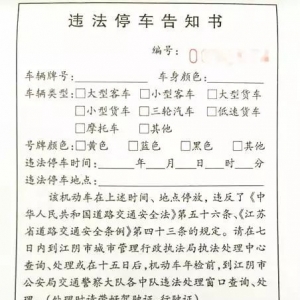 违法停车告知书
编号:
车辆牌号: 车身颜色:
车辆类型:□大型客车 □小型客车 □大型货车
□小型货车 □三轮汽车 □低速货车
□摩托车 □其他
号牌颜色:□黄色 □蓝色 □黑色 □其他
违法停车时间: 年 月 日 时 分
违法停车地点:
该机动车在上述时间、地点停放,违反了《中
华人民共和国道路交通安全法》第五十六条、《江苏
省道路交通安全条例》第四十三条的规定。请在七
日内到江阴市城市管理行政执法局执法处理中心
查询、处理或在十五日后,机动车年检前,到江阴市
公安局交通警察大队各中队违法处理窗口查询、处
理。(处理时请带好驾驶证、行驶证)